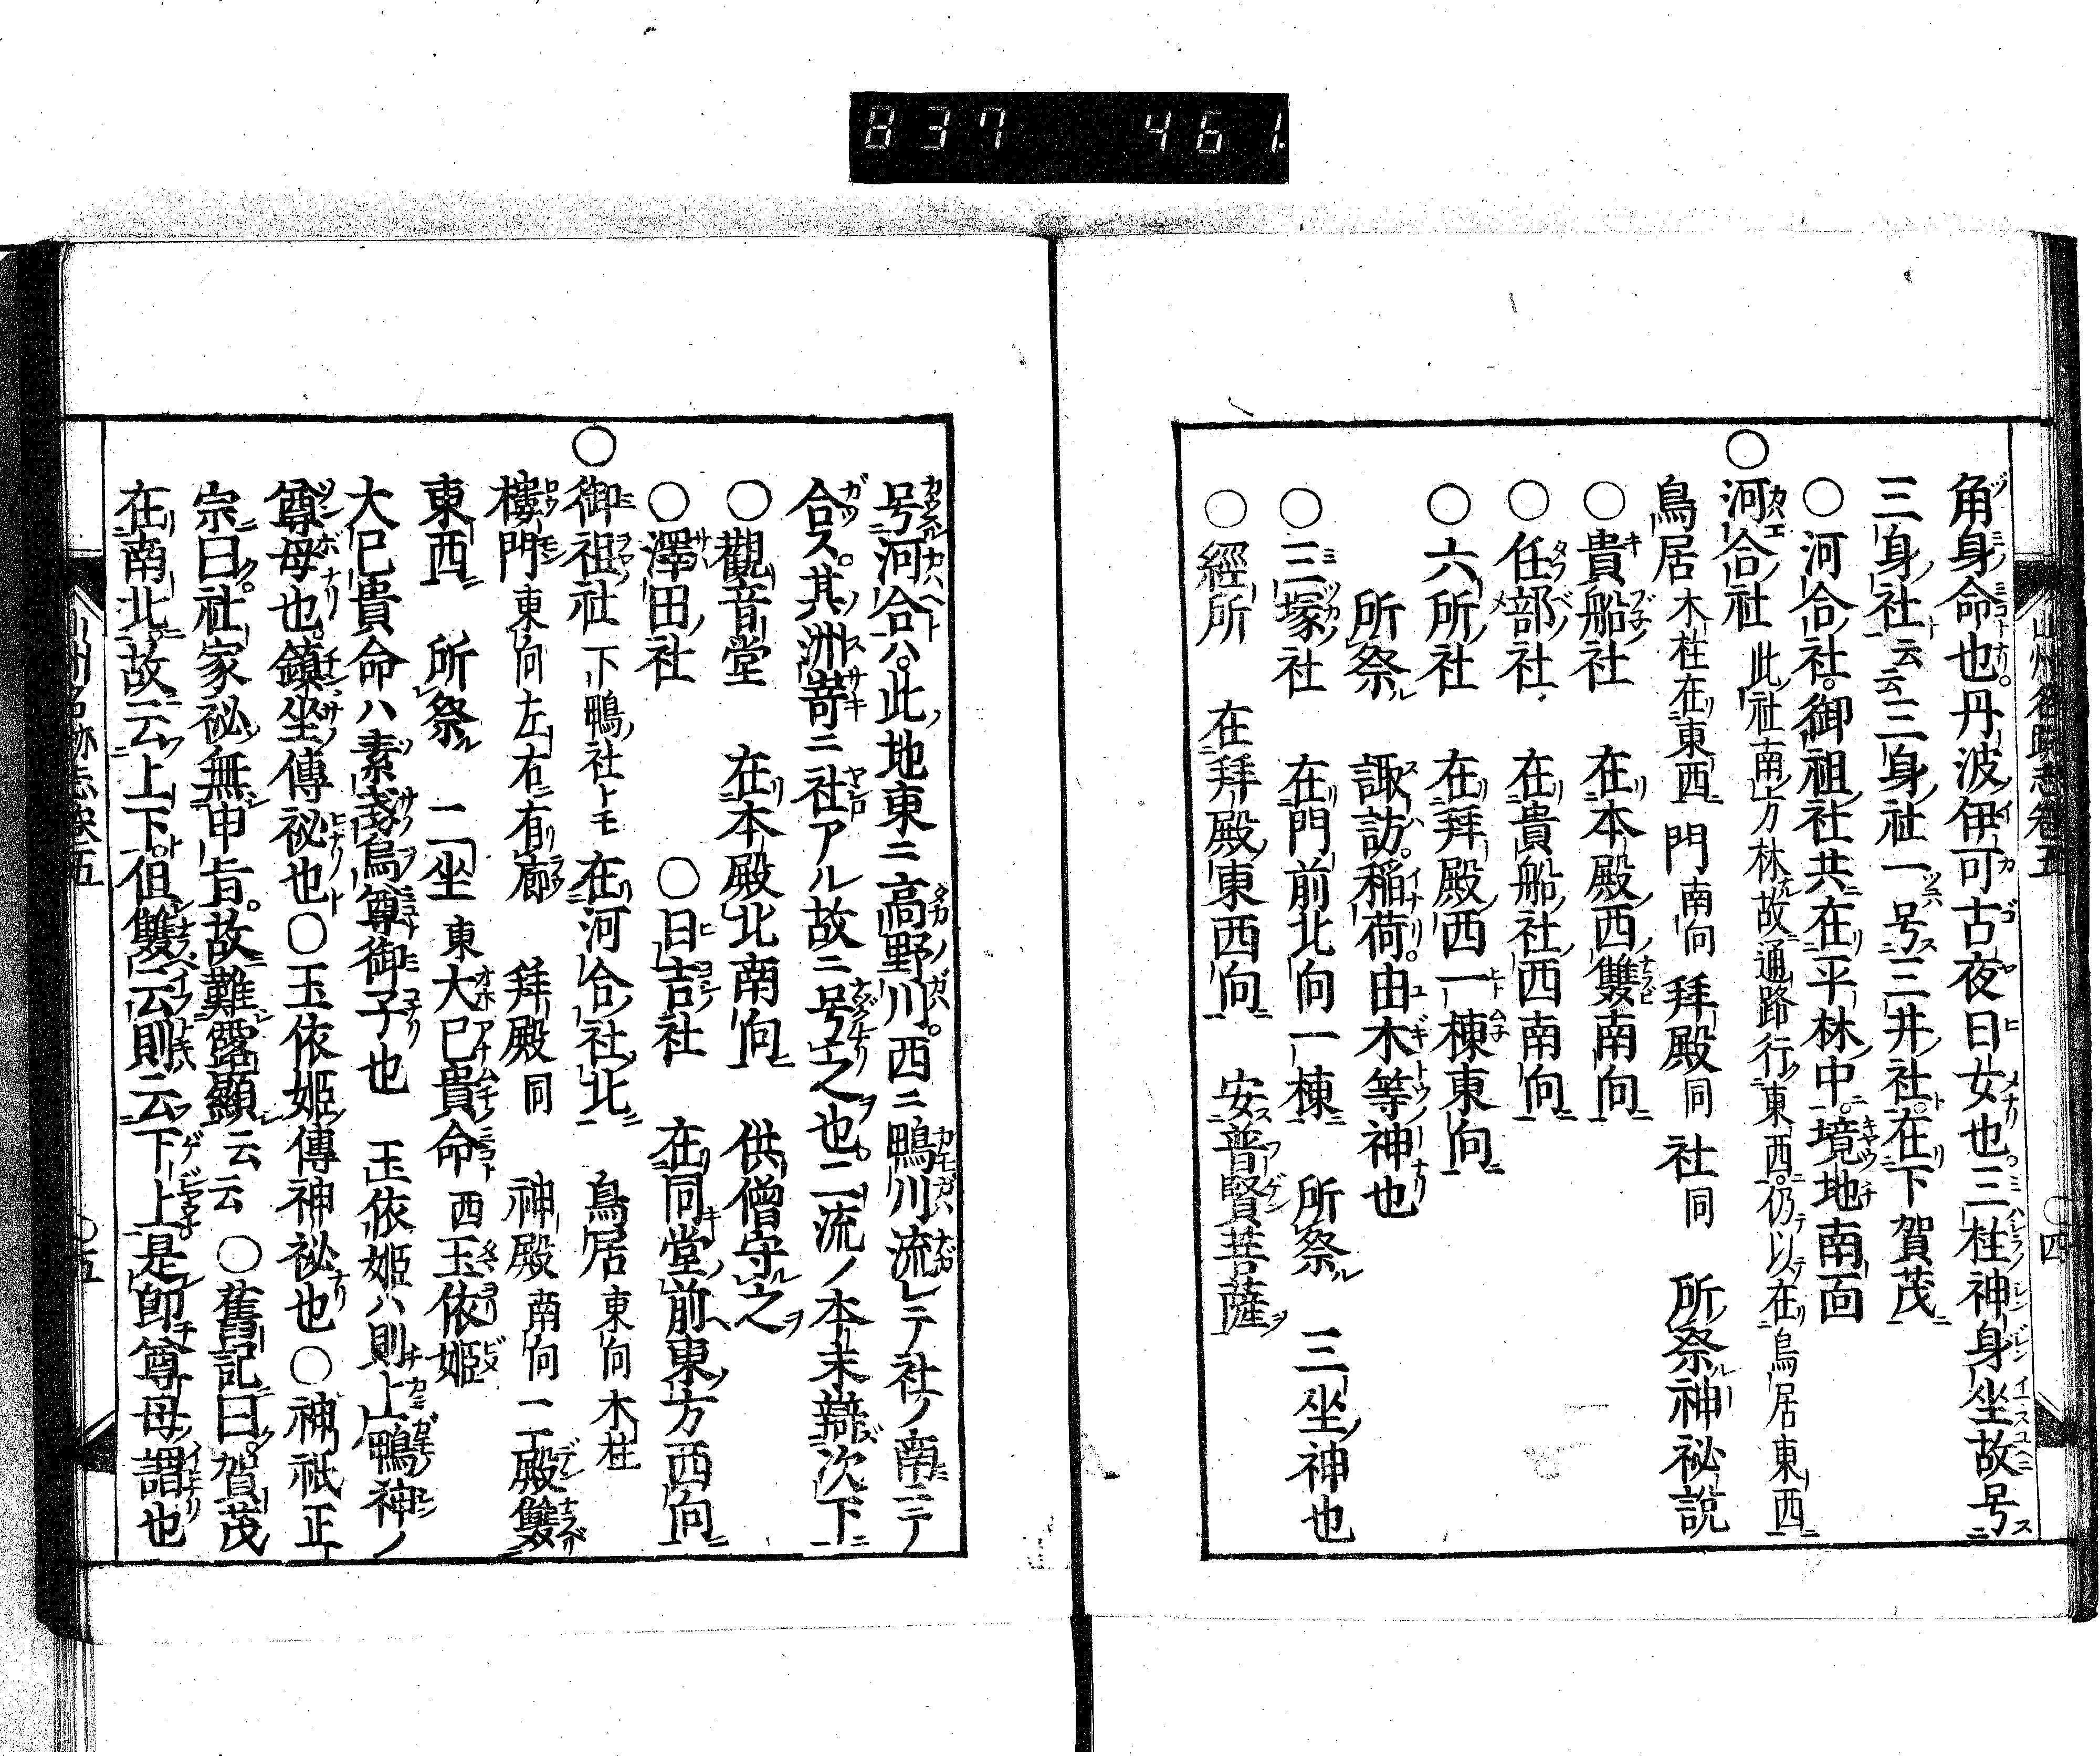 837 461
山州名跡志巻五
〇四
角身命也丹波伊可古夜日女也三柱神身坐故号
三身社云云三身社一号三井社在下賀茂
○河合社御祖社共在平林中境地南面
○河合社 此社南方林故通路行東西仍以在鳥居東西
鳥居木柱在東西 門南向 拜殿同 社同 所祭神祕説
○貴船社 在本殿西雙南向
○任部社 在貴船社西南向
○六所社 在拜殿西一棟東向
所祭 諏訪稲荷由木等神也
○三塚社 在門前北向一棟 所祭 三坐神也
○經所 在拜殿東西向 安普賢菩薩
号河合ハ此地東ニ高野川西ニ鴨川流レテ社ノ南ニテ
合ス其洲嵜ニ社アル故ニ号之也二流ノ本末辯次下
○觀音堂 在本殿北南向 供僧守之
○澤田社 ○日吉社 在同堂前東方西向
○御祖社 下鴨社トモ 在河合社北 鳥居東向木柱
樓門東向左右有廊 拜殿同 神殿南向二殿雙
東西 所祭 二坐 東大巳貴命 西玉依姫
大巳貴命ハ素戔烏尊御子也 玉依姫ハ則上鴨神ノ
尊母也鎮坐傳祕也○玉依姫傳神祕也○神祇正
宗曰社家祕無申旨故難露顯云云 ○舊記曰賀茂
在南北故云上下但雙云則云下上是即尊母謂也